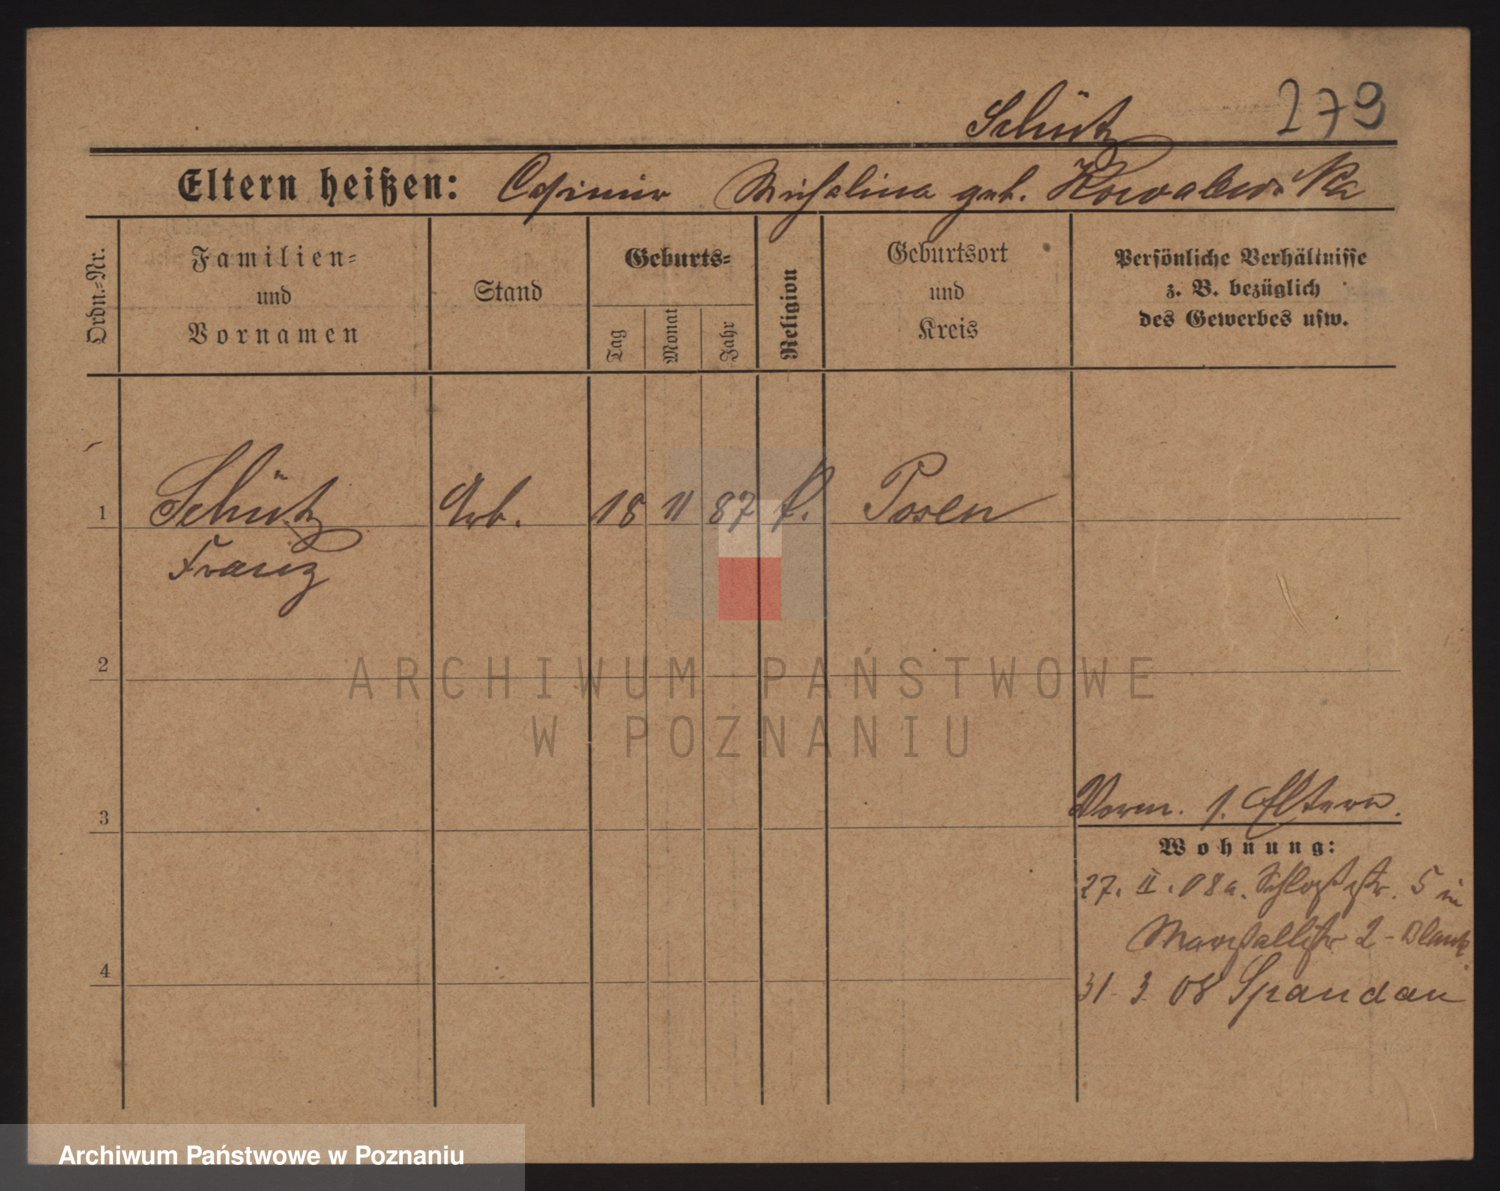 Schütz 279
Eltern heißen: Casimir Michalina geb. Kowalewska
Ordn.-Nr.
Familien-
und
Vornamen
Stand
Geburts-
Tag
Monat
Jahr
Religion
Geburtsort
und
Kreis
Persönliche Verhältnisse
z. B. bezüglich
des Gewerbes usw.
1 Schütz Arb. 18 11 87 k. Posen
Franz
2
3
Vorm. s. Eltern.
Wohnung:
27. II. 08 a. Schloßstr. 5 in
2 - Blank
4
31. 3. 08 Spandau
ARCHIWUM PAŃSTWOWE
W POZNANIU
Archiwum Państwowe w Poznaniu